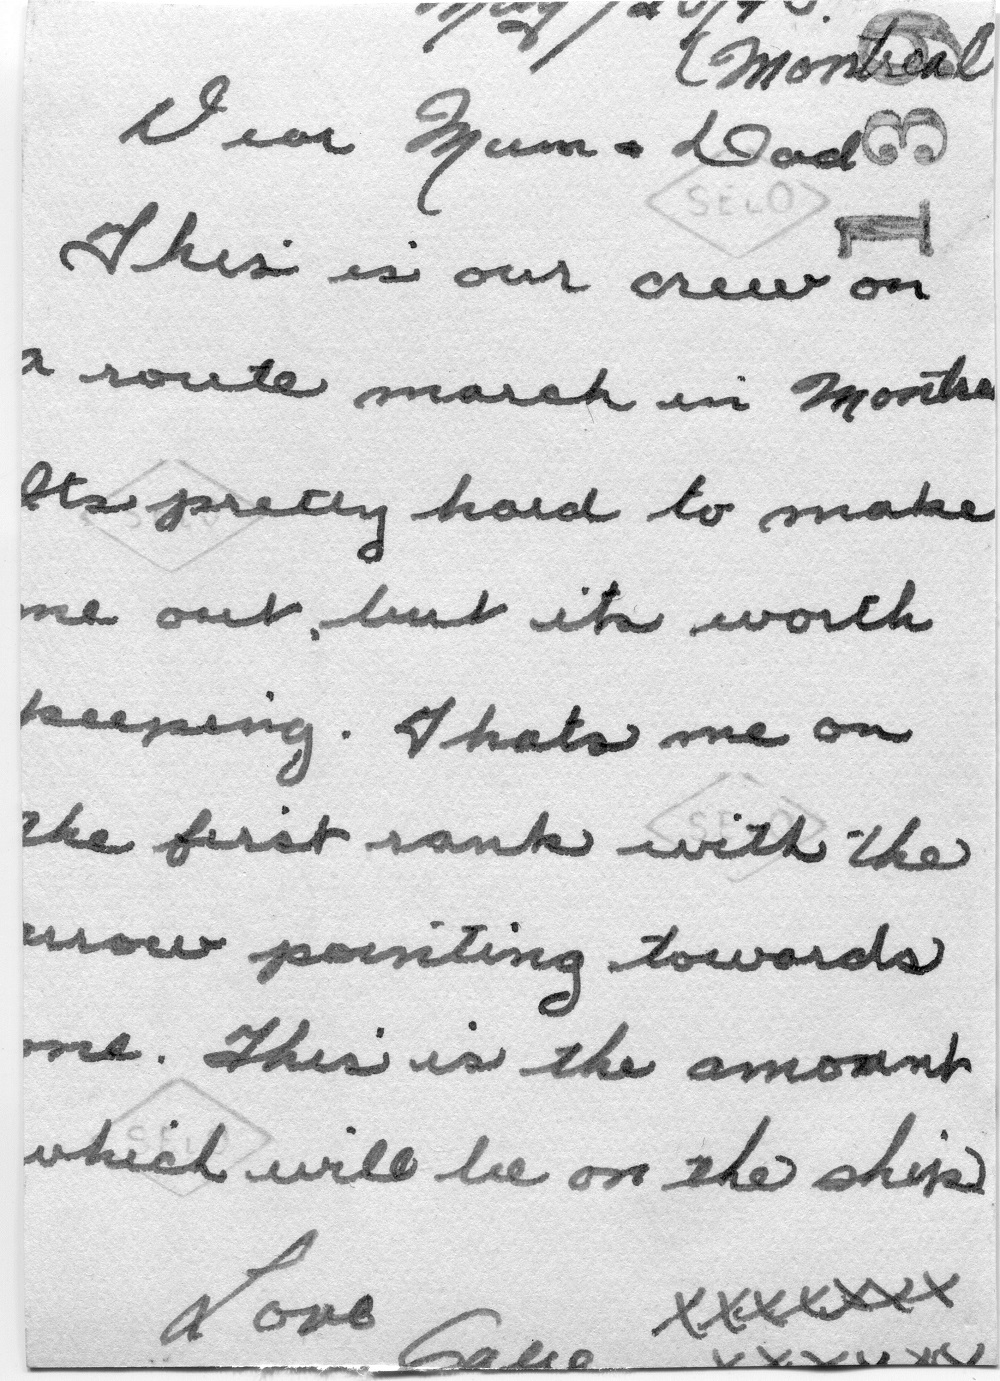 (Montreal
Dear Mum + Dad
This is our crew on
a route march in Montre
Its pretty hard to make
me out, but its worth
keeping. Thats me on
the first rank with the
arrow pointing towards
me. This is the amount
which will be on the ship
Love xxxxxxx
SELO
SELO
SELO
SELO
136